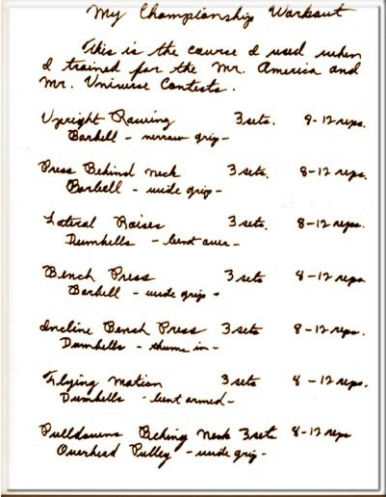 My Championship Workout
This is the course I used when
I trained for the Mr. America and
Mr. Universe Contests.
Upright Rowing 3 sets. 8-12 reps.
Barbell - narrow grip -
Press Behind neck 3 sets. 8-12 reps.
Barbell - wide grip -
Lateral Raises 3 sets. 8-12 reps.
Dumbells - bent over -
Bench Press 3 sets 8-12 reps
Barbell - wide grip -
Incline Bench Press 3 sets 8-12 reps.
Dumbells - thums in -
Flying Motion 3 sets 8-12 reps.
Dumbells - bent armed -
Pulldowns Behing Neck 3 sets 8-12 reps
Overherd Pulley - wide grip -